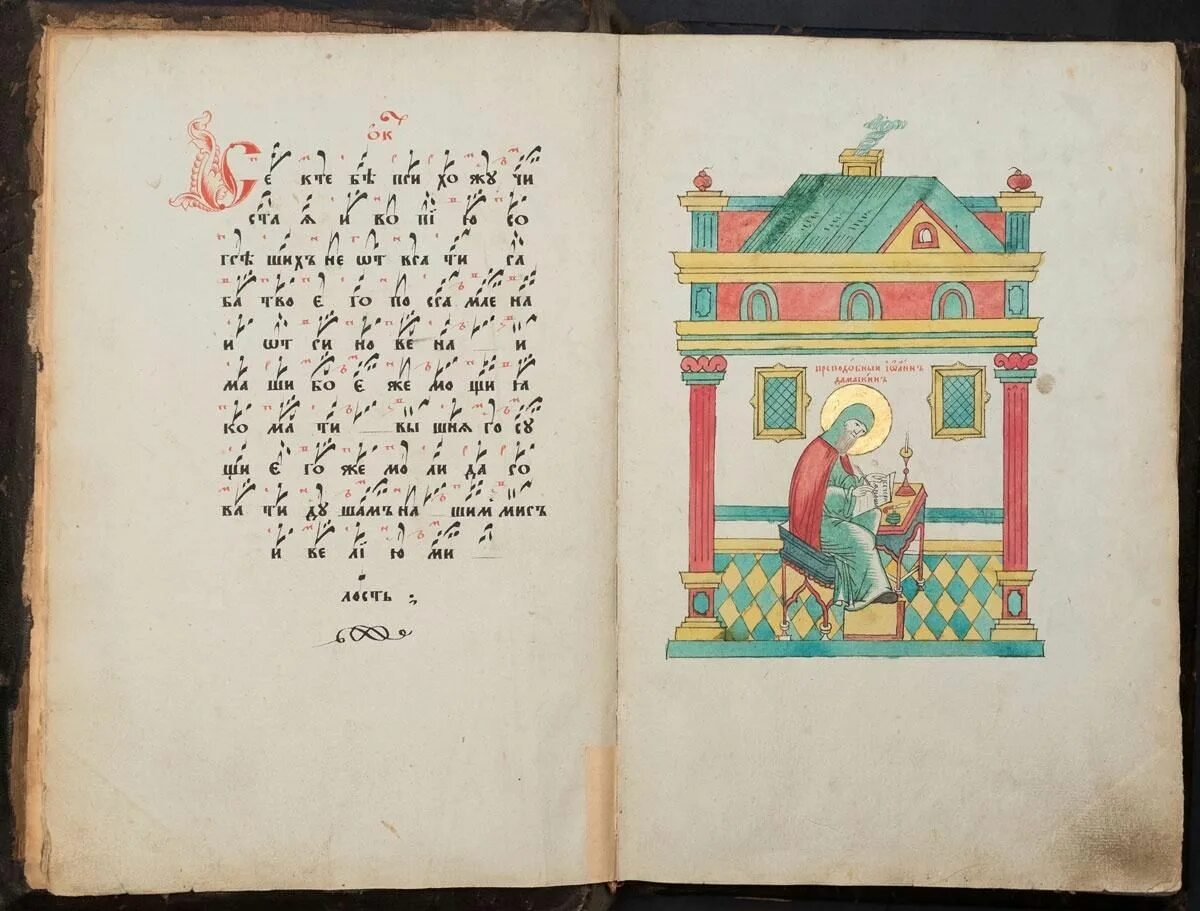 ок
Се к те бѣ при хо жу чи
ста ѧ и во пі ю со
грѣ шихъ не ѿт вра ти ра
ба тво є го по сра мле на
и ѿт ри но ве на и
ма ши бо є же мо щи ꙗ
ко ма ти вы шнѧ го су
щи є го же мо ли да ро
ва ти ду шамъ на шим миръ
и ве лі ю ми
лость ;
преподобныи іѡаннъ
дамаскинъ